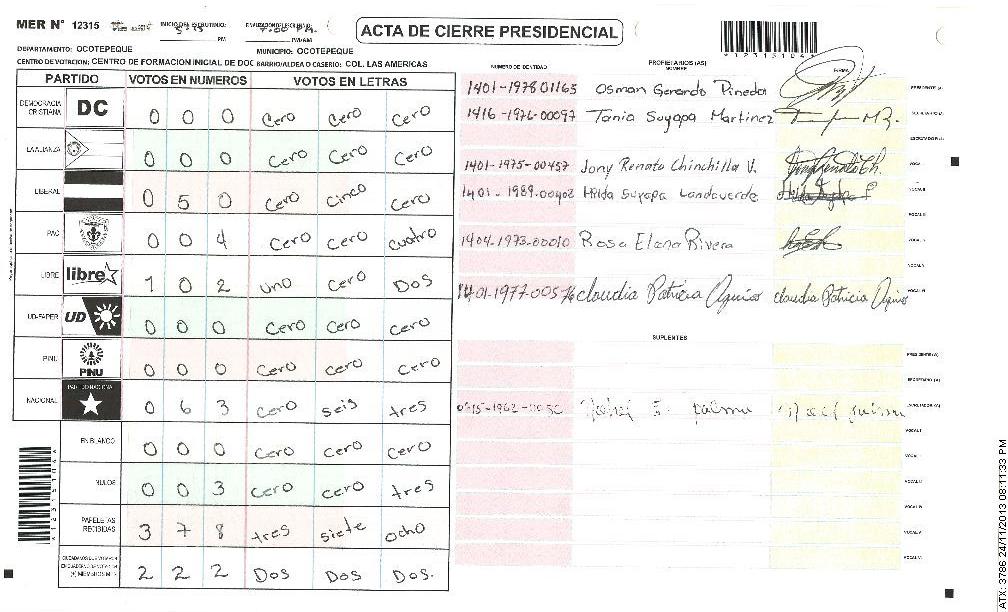 MER Nº 12315 INICIO DE ESCRUTINIO: 5:15 PM FINALIZACION ESCRUTINIO: 7:00 PM. PM/AM
ACTA DE CIERRE PRESIDENCIAL
*12315104*
DEPARTAMENTO: OCOTEPEQUE MUNICIPIO: OCOTEPEQUE
CENTRO DE VOTACION: CENTRO DE FORMACION INICIAL DE DOC BARRIO/ALDEA O CASERIO: COL. LAS AMERICAS
PARTIDO VOTOS EN NUMEROS VOTOS EN LETRAS
DEMOCRACIA CRISTIANA DC 0 0 0 Cero Cero Cero
LA ALIANZA 0 0 0 Cero Cero Cero
LIBERAL 0 5 0 Cero Cinco Cero
PAC 0 0 4 Cero Cero Cuatro
LIBRE libre 1 0 2 Uno Cero Dos
UD-FAPER UD 0 0 0 Cero Cero Cero
PINU PINU 0 0 0 Cero Cero Cero
NACIONAL PARTIDO NACIONAL 0 6 3 Cero seis tres
EN BLANCO 0 0 0 Cero Cero Cero
NULOS 0 0 3 Cero Cero tres
PAPELETAS RECIBIDAS 3 7 8 tres siete ocho
CIUDADANOS QUE VOTARON (+) MIEMBROS MER 2 2 2 Dos Dos Dos.
NUMERO DE IDENTIDAD PROPIETARIOS (AS) NOMBRE FIRMA
1401-1978 01165 Osman Gerardo Pineda PRESIDENTE (A)
1416-1976-00097 Tania Suyapa Martinez SECRETARIO (A)
ESCRUTADOR (A)
1401-1975-00457 Jony Renato Chinchilla V. VOCAL I
1401-1989-00402 Hilda Suyapa Landaverde VOCAL II
VOCAL III
1404-1973-00010 Rosa Elena Rivera VOCAL IV
VOCAL V
1401-1977-00576 claudia Patricia claudia Patricia VOCAL VI
SUPLENTES
PRESIDENTE (A)
SECRETARIO (A)
ESCRUTADOR (A)
VOCAL I
VOCAL II
VOCAL III
VOCAL IV
VOCAL V
VOCAL VI
ATX: 3786 24/11/2013 08:11:33 PM